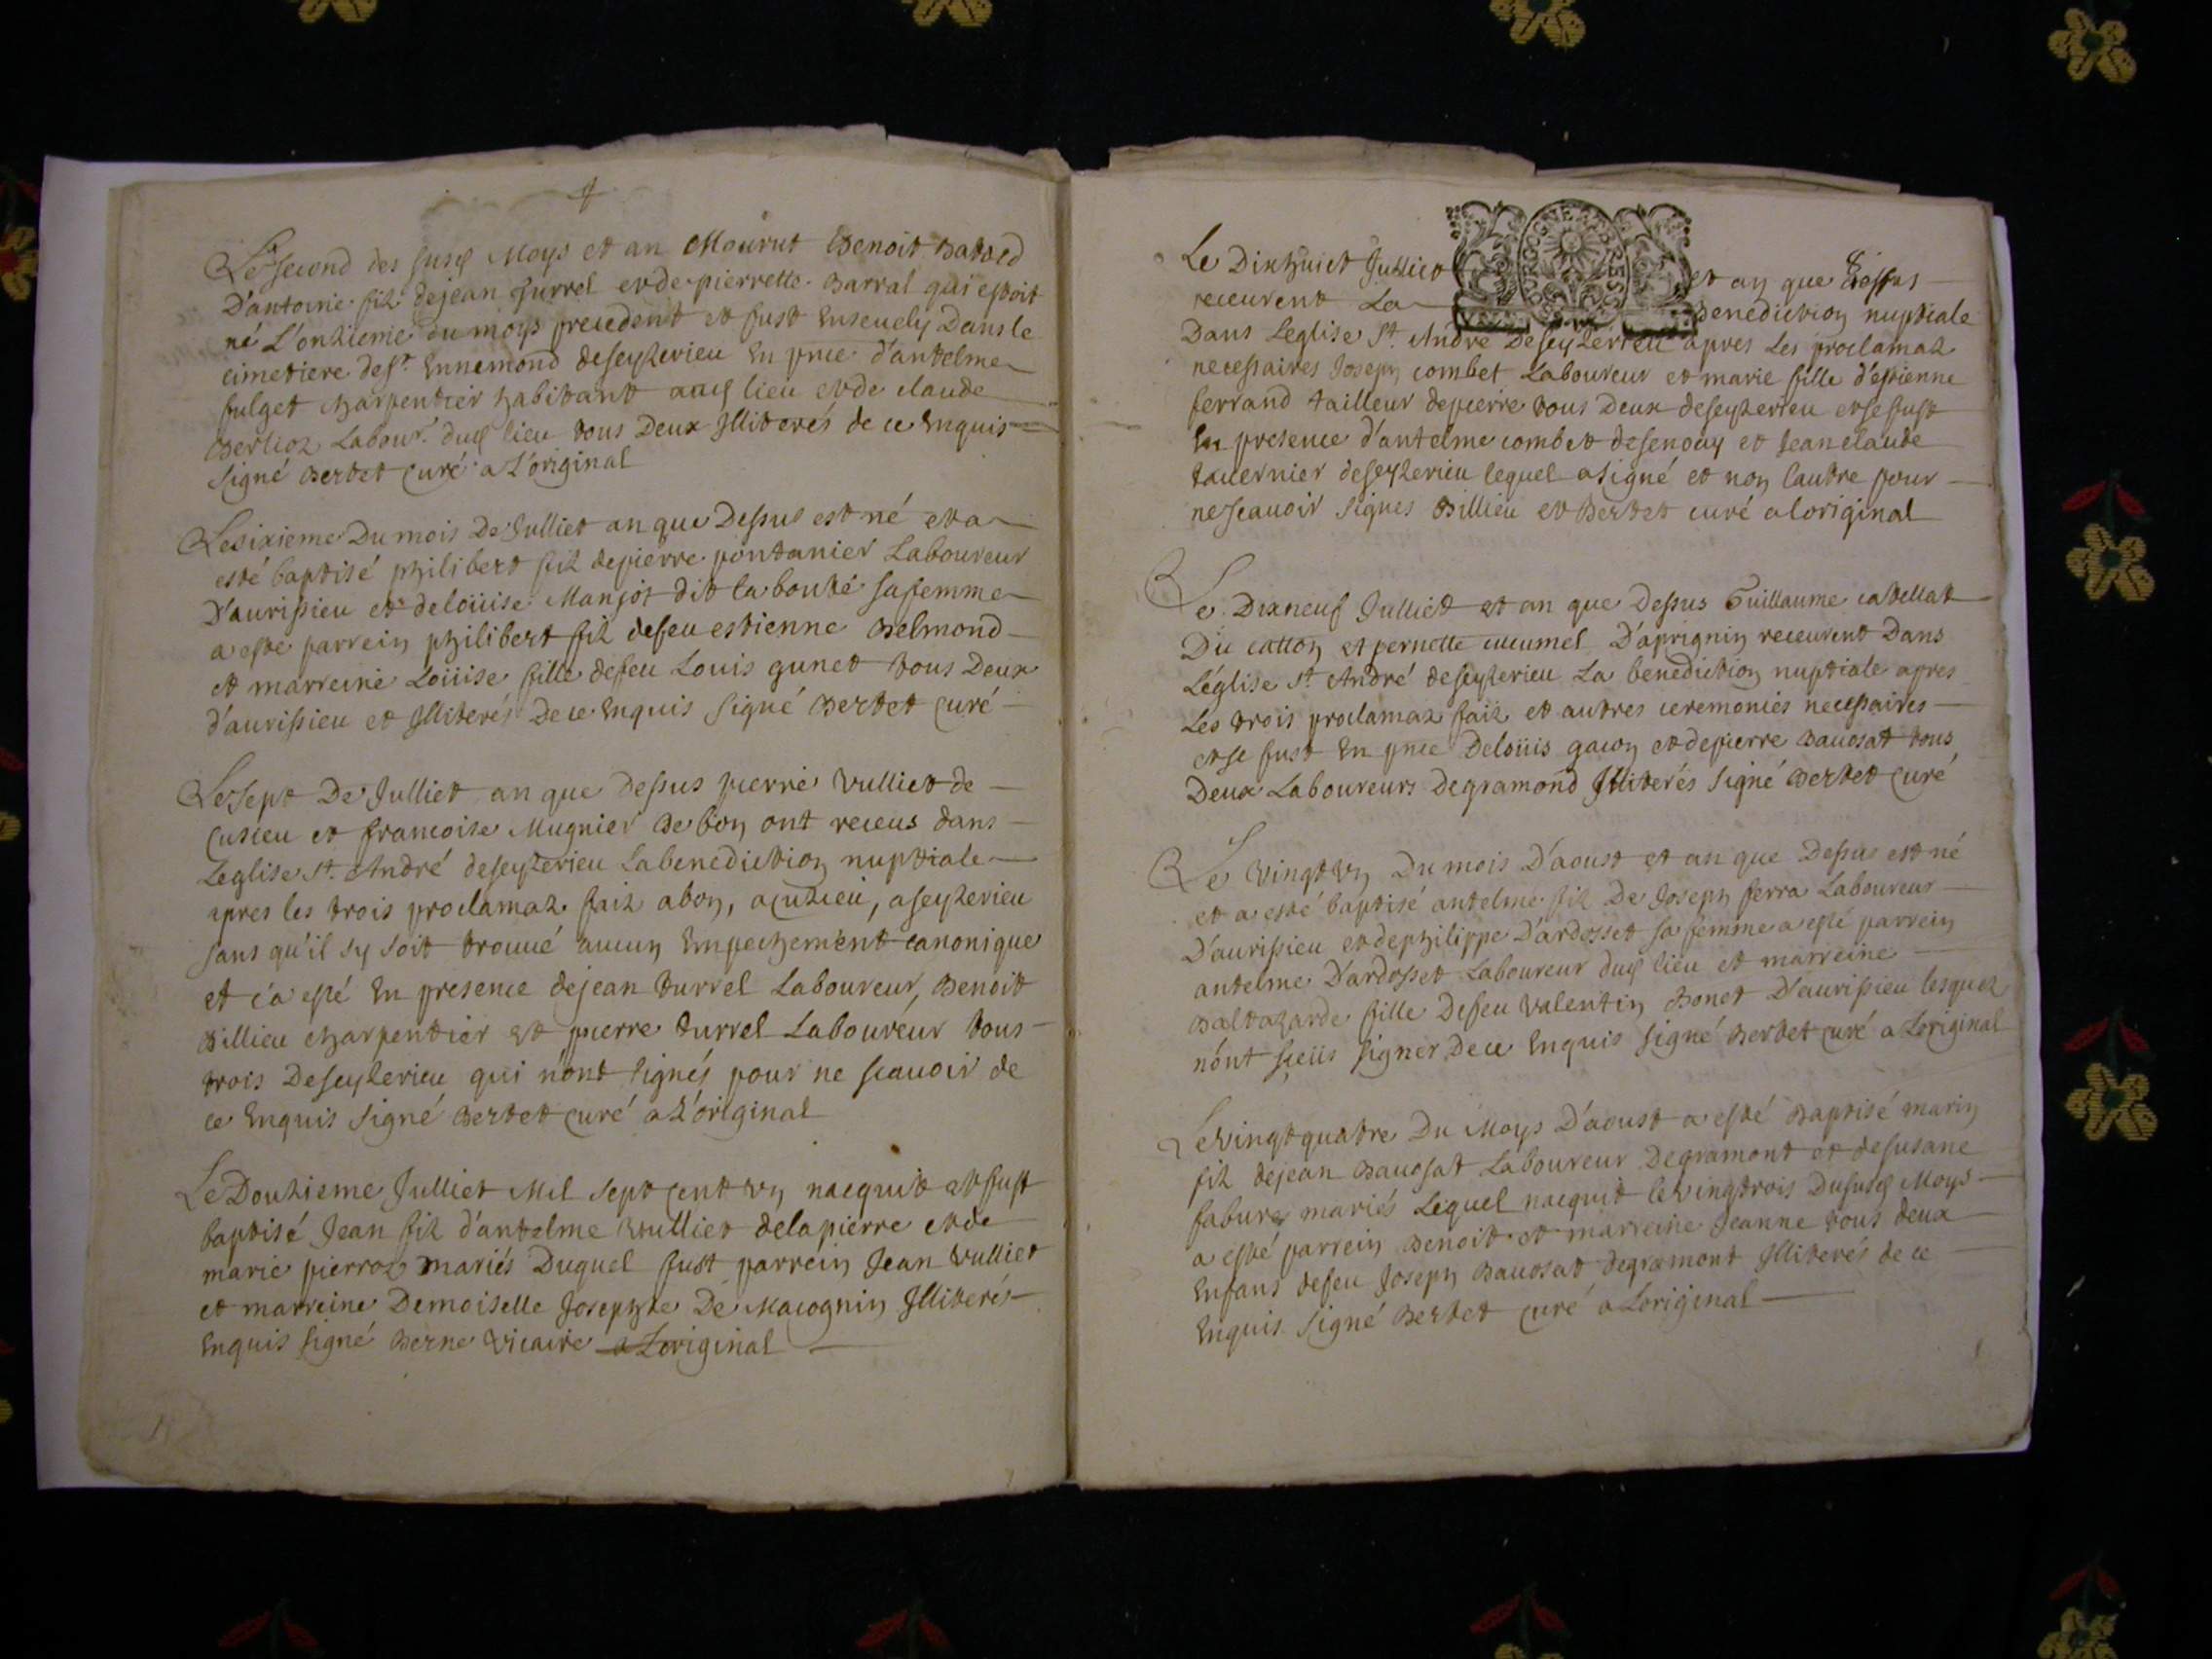 Le second des susd Moys et an Mourut Benoit
D'antoine fils de jean Turrel et de pierrette Barral qui estoit
né L'onzieme du moys precedent et fust Ensevely Dans le
cimetiere de st Ennemond de seyzerieu En pnce d'antelme
fulget charpentier habitant aud lieu et de claude
Berlioz Labour. dud lieu tous Deux Illiterés de ce Enquis
signé Bertet curé a L'original
Le sixieme Du mois De Julliet an que Dessus est né et a
esté baptisé philibert fils de pierre pontanier Laboureur
D'aurissieu et de loüise Manjot dit la bonté sa femme
a esté parrein philibert fils de feu estienne Belmond
et marreine Loüise fille de feu Louis gunet tous Deux
d'aurissieu et Illiterés De ce Enquis signé Bertet curé
Le sept De Julliet an que dessus pierre Vulliet de
Cuzieu et francoise Mugnier De bon ont receus dans
L'eglise St. André de seyzerieu La benediction nuptiale
apres les trois proclamaz faiz a bon, a cuzieu, a seyzerieu
sans qu'il sy soit trouué aucun Empechement canonique
et c'a esté En presence de jean turrel Laboureur, Benoit
Billieu charpentier et pierre turrel Laboureur tous
trois De seyzerieu qui n'ont signés pour ne scauoir de
ce Enquis signé Bertet curé a L'original
Le Douzieme Julliet Mil sept cent vn nacquit et fust
baptisé Jean fils d'antelme Vulliet de la pierre et de
marie pierroz mariés Duquel fust parrein Jean Vulliet
et marreine Demoiselle Josephte De Macognin Illiterés
Enquis signé Berne Vicaire a Loriginal
8
Le Dixhuict Julliet et an que dessus
receurent La Benediction nuptiale
Dans L'eglise St. André De seyzerieu apres Les proclamaz
necessaires Joseph combet Laboureur et marie fille d'estienne
ferrand tailleur de pierre tous Deux de seyzerieu et se fust
En presence d'antelme combet de senoy et Jean claude
tauernier de seyzerieu lequel a signé et non l'autre pour
ne scauoir signes Billieu et Bertet curé a loriginal
Le Dixneuf Julliet et an que Dessus Guillaume catellat
Dit catton et pernette cucumel D'aprignin receurent Dans
L'église St André de seyzerieu La benediction nuptiale apres
Les trois proclamaz faiz et autres ceremonies necessaires
et se fust En pnce De loüis gacon et de pierre Bauosat tous
Deux Laboureurs De gramond Illiterés signé Bertet curé
Le Vingt vn Du mois D'aoust et an que Dessus est né
et a esté baptisé antelme fils De Joseph ferra Laboureur
D'aurissieu et de philippe D'ardosset sa femme a esté parrein
antelme D'ardosset Laboureur dud lieu et marreine
Baltazarde fille De feu Valentin Bonet D'aurissieu lesquelz
n'ont sceüs signer De ce Enquis signé Bertet curé a Loriginal
Le vingt quatre Du Moys D'aoust a esté Baptisé marin
fils de jean Bauosat Laboureur De gramont et de susane
fabure mariés Lequel nacquit le vingt trois Du susd Moys
a esté parrein Benoit et marreine Jeanne tous deux
Enfans de feu Joseph Bauosat de gramont Illiterés de ce
Enquis signé Bertet curé a Loriginal